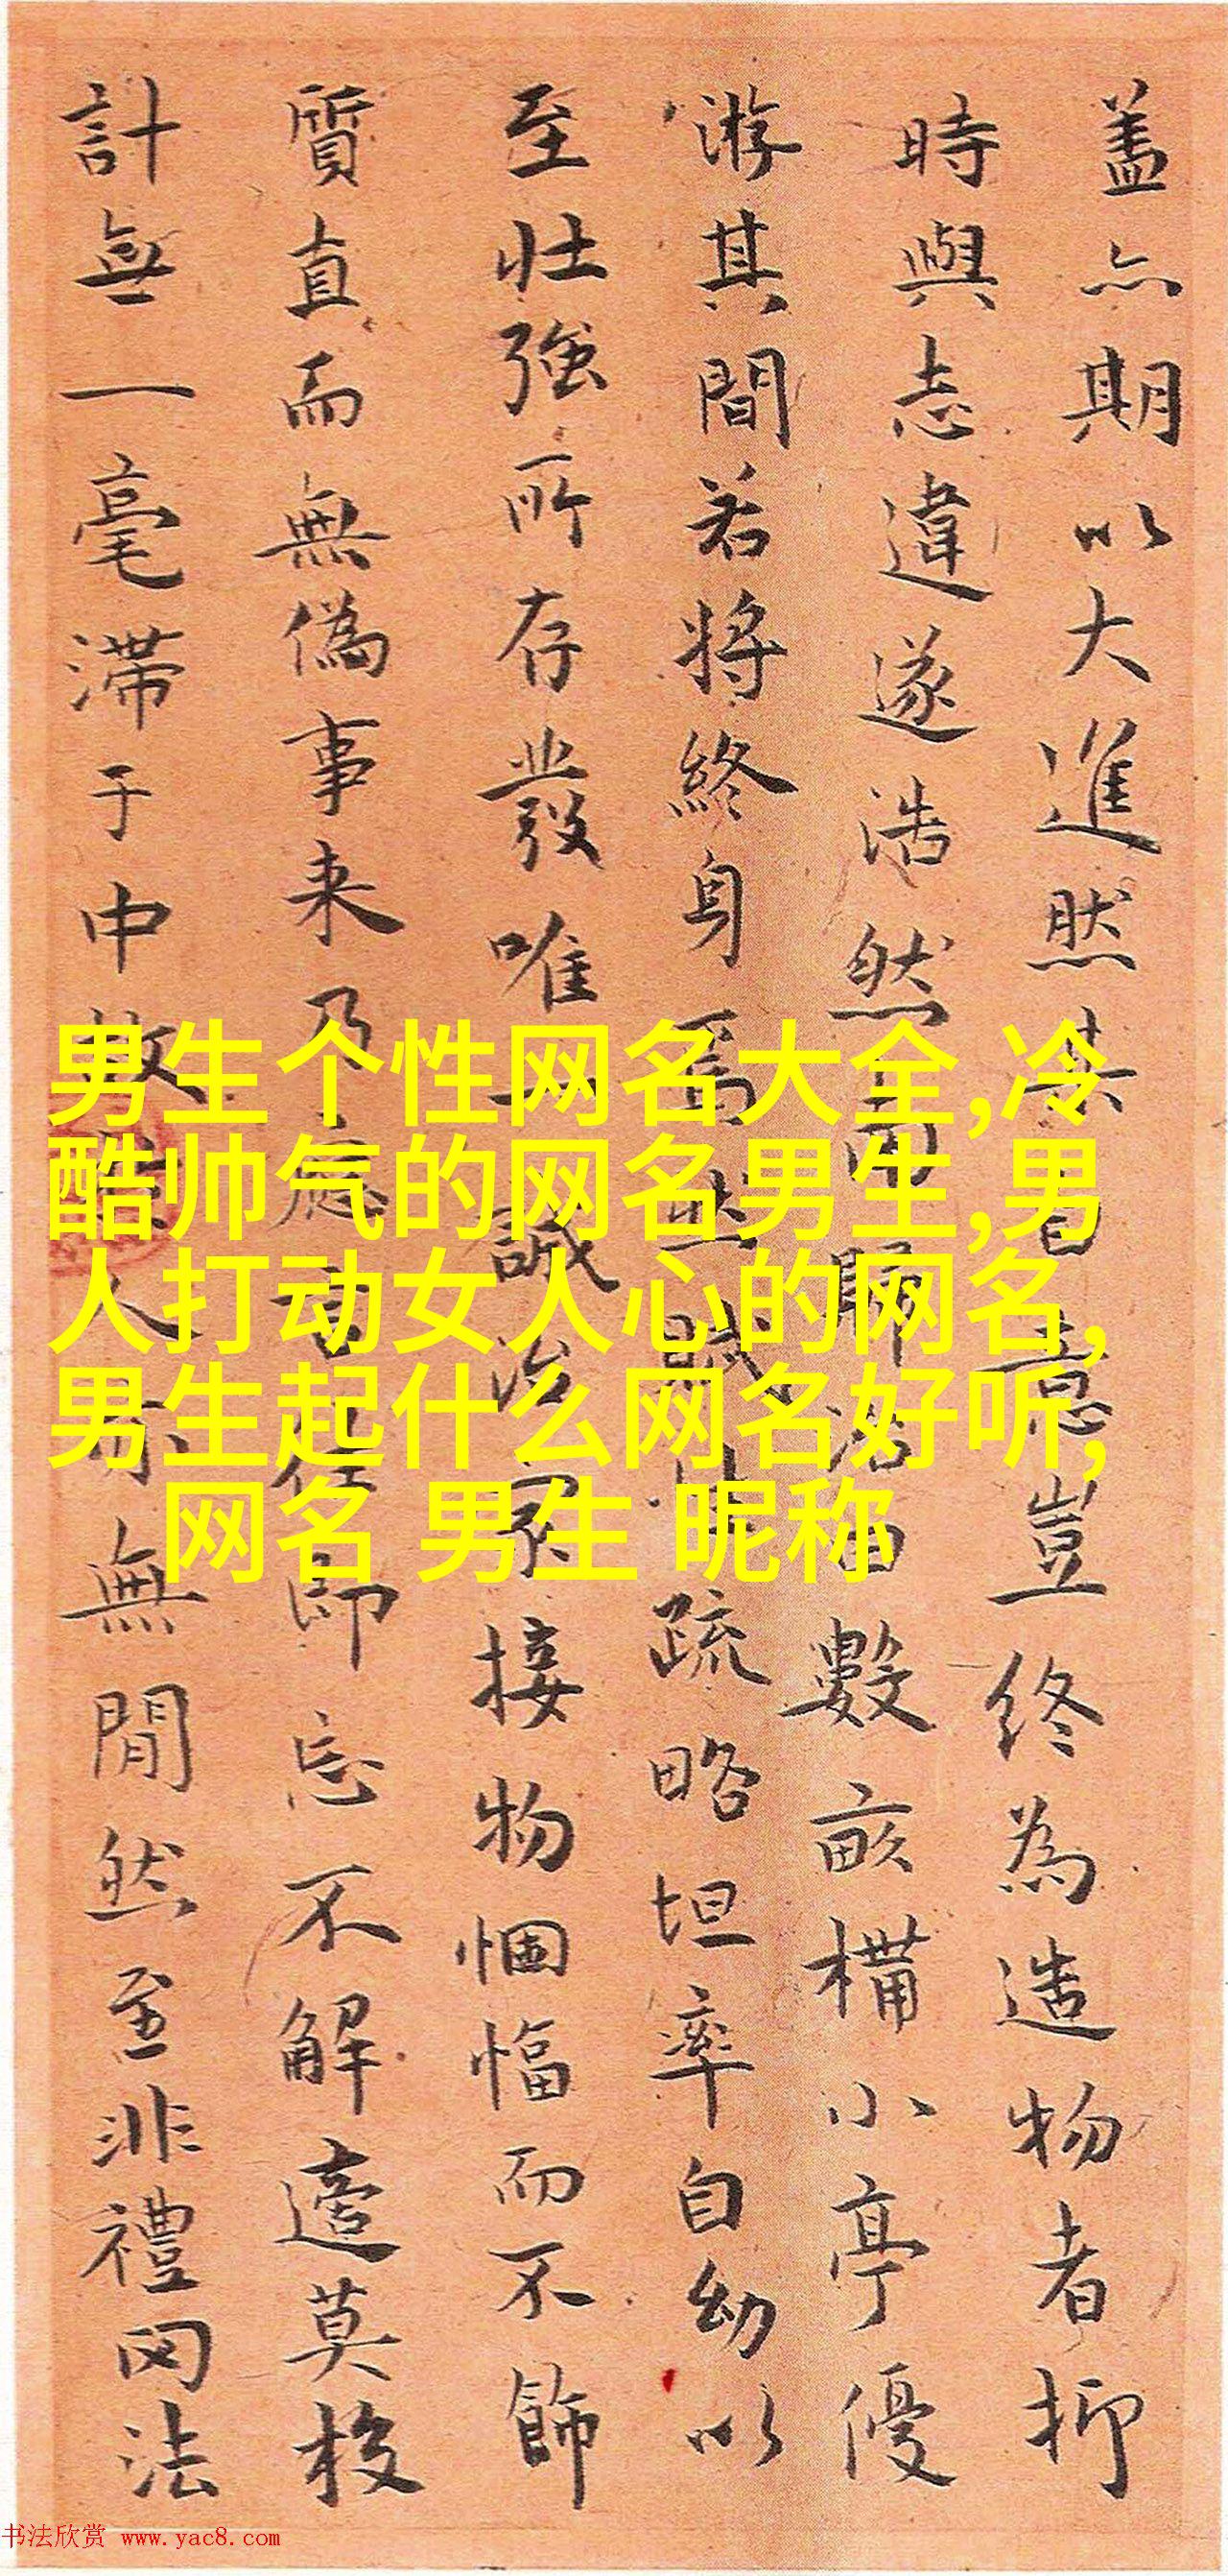 盖亦期以大進然其意豈終為造物者抑
時與志違遂浩然而歸治田數畝構小亭優
游其間若將終身焉然賦性疏略坦率自幼以
至壯強所存發唯一誠治接物悃愊而不飾
質直而無偽事来乃應即忘不解適莫校
計無一毫滞于中故人無閒然至非禮罔法
男生个性网名大全,冷
酷帅气的网名男生,男
人打动女人心的网名,
男生起什么网名好听,
网名 男生 昵称
书法欣赏 www.yac8.com